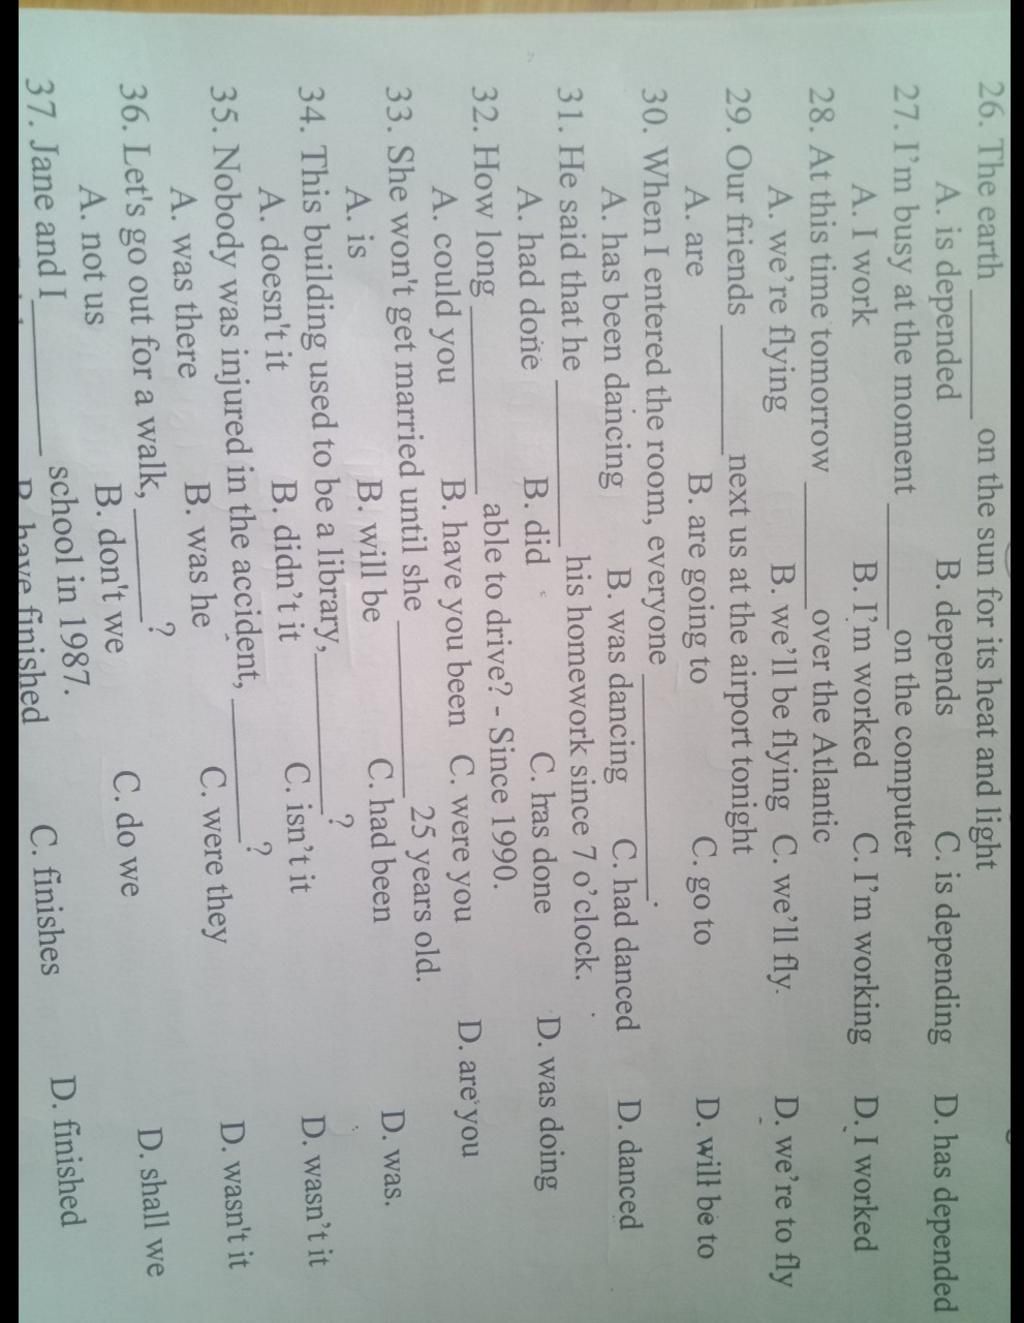 26. The earth ________ on the sun for its heat and light
A. is depended B. depends C. is depending D. has depended
27. I'm busy at the moment ________ on the computer
A. I work B. I'm worked C. I'm working D. I worked
28. At this time tomorrow ________ over the Atlantic
A. we're flying B. we'll be flying C. we'll fly. D. we're to fly
29. Our friends ________ next us at the airport tonight
A. are B. are going to C. go to D. will be to
30. When I entered the room, everyone ________.
A. has been dancing B. was dancing C. had danced D. danced
31. He said that he ________ his homework since 7 o'clock.
A. had done B. did C. has done D. was doing
32. How long ________ able to drive? - Since 1990.
A. could you B. have you been C. were you D. are you
33. She won't get married until she ________ 25 years old.
A. is B. will be C. had been D. was.
34. This building used to be a library, ________ ?
A. doesn't it B. didn't it C. isn't it D. wasn't it
35. Nobody was injured in the accident, ________ ?
A. was there B. was he C. were they D. wasn't it
36. Let's go out for a walk, ________ ?
A. not us B. don't we C. do we D. shall we
37. Jane and I ________ school in 1987.
B. have finished C. finishes D. finished